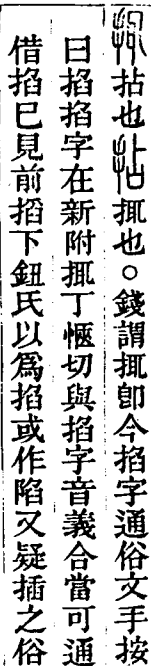 㧗拈也拈㧗也○錢謂㧗即今掐字通俗文手按
曰掐掐字在新附㧗丁愜切與掐字音義合當可通
借掐巳見前搯下鈕氏以爲掐或作陷又疑插之俗